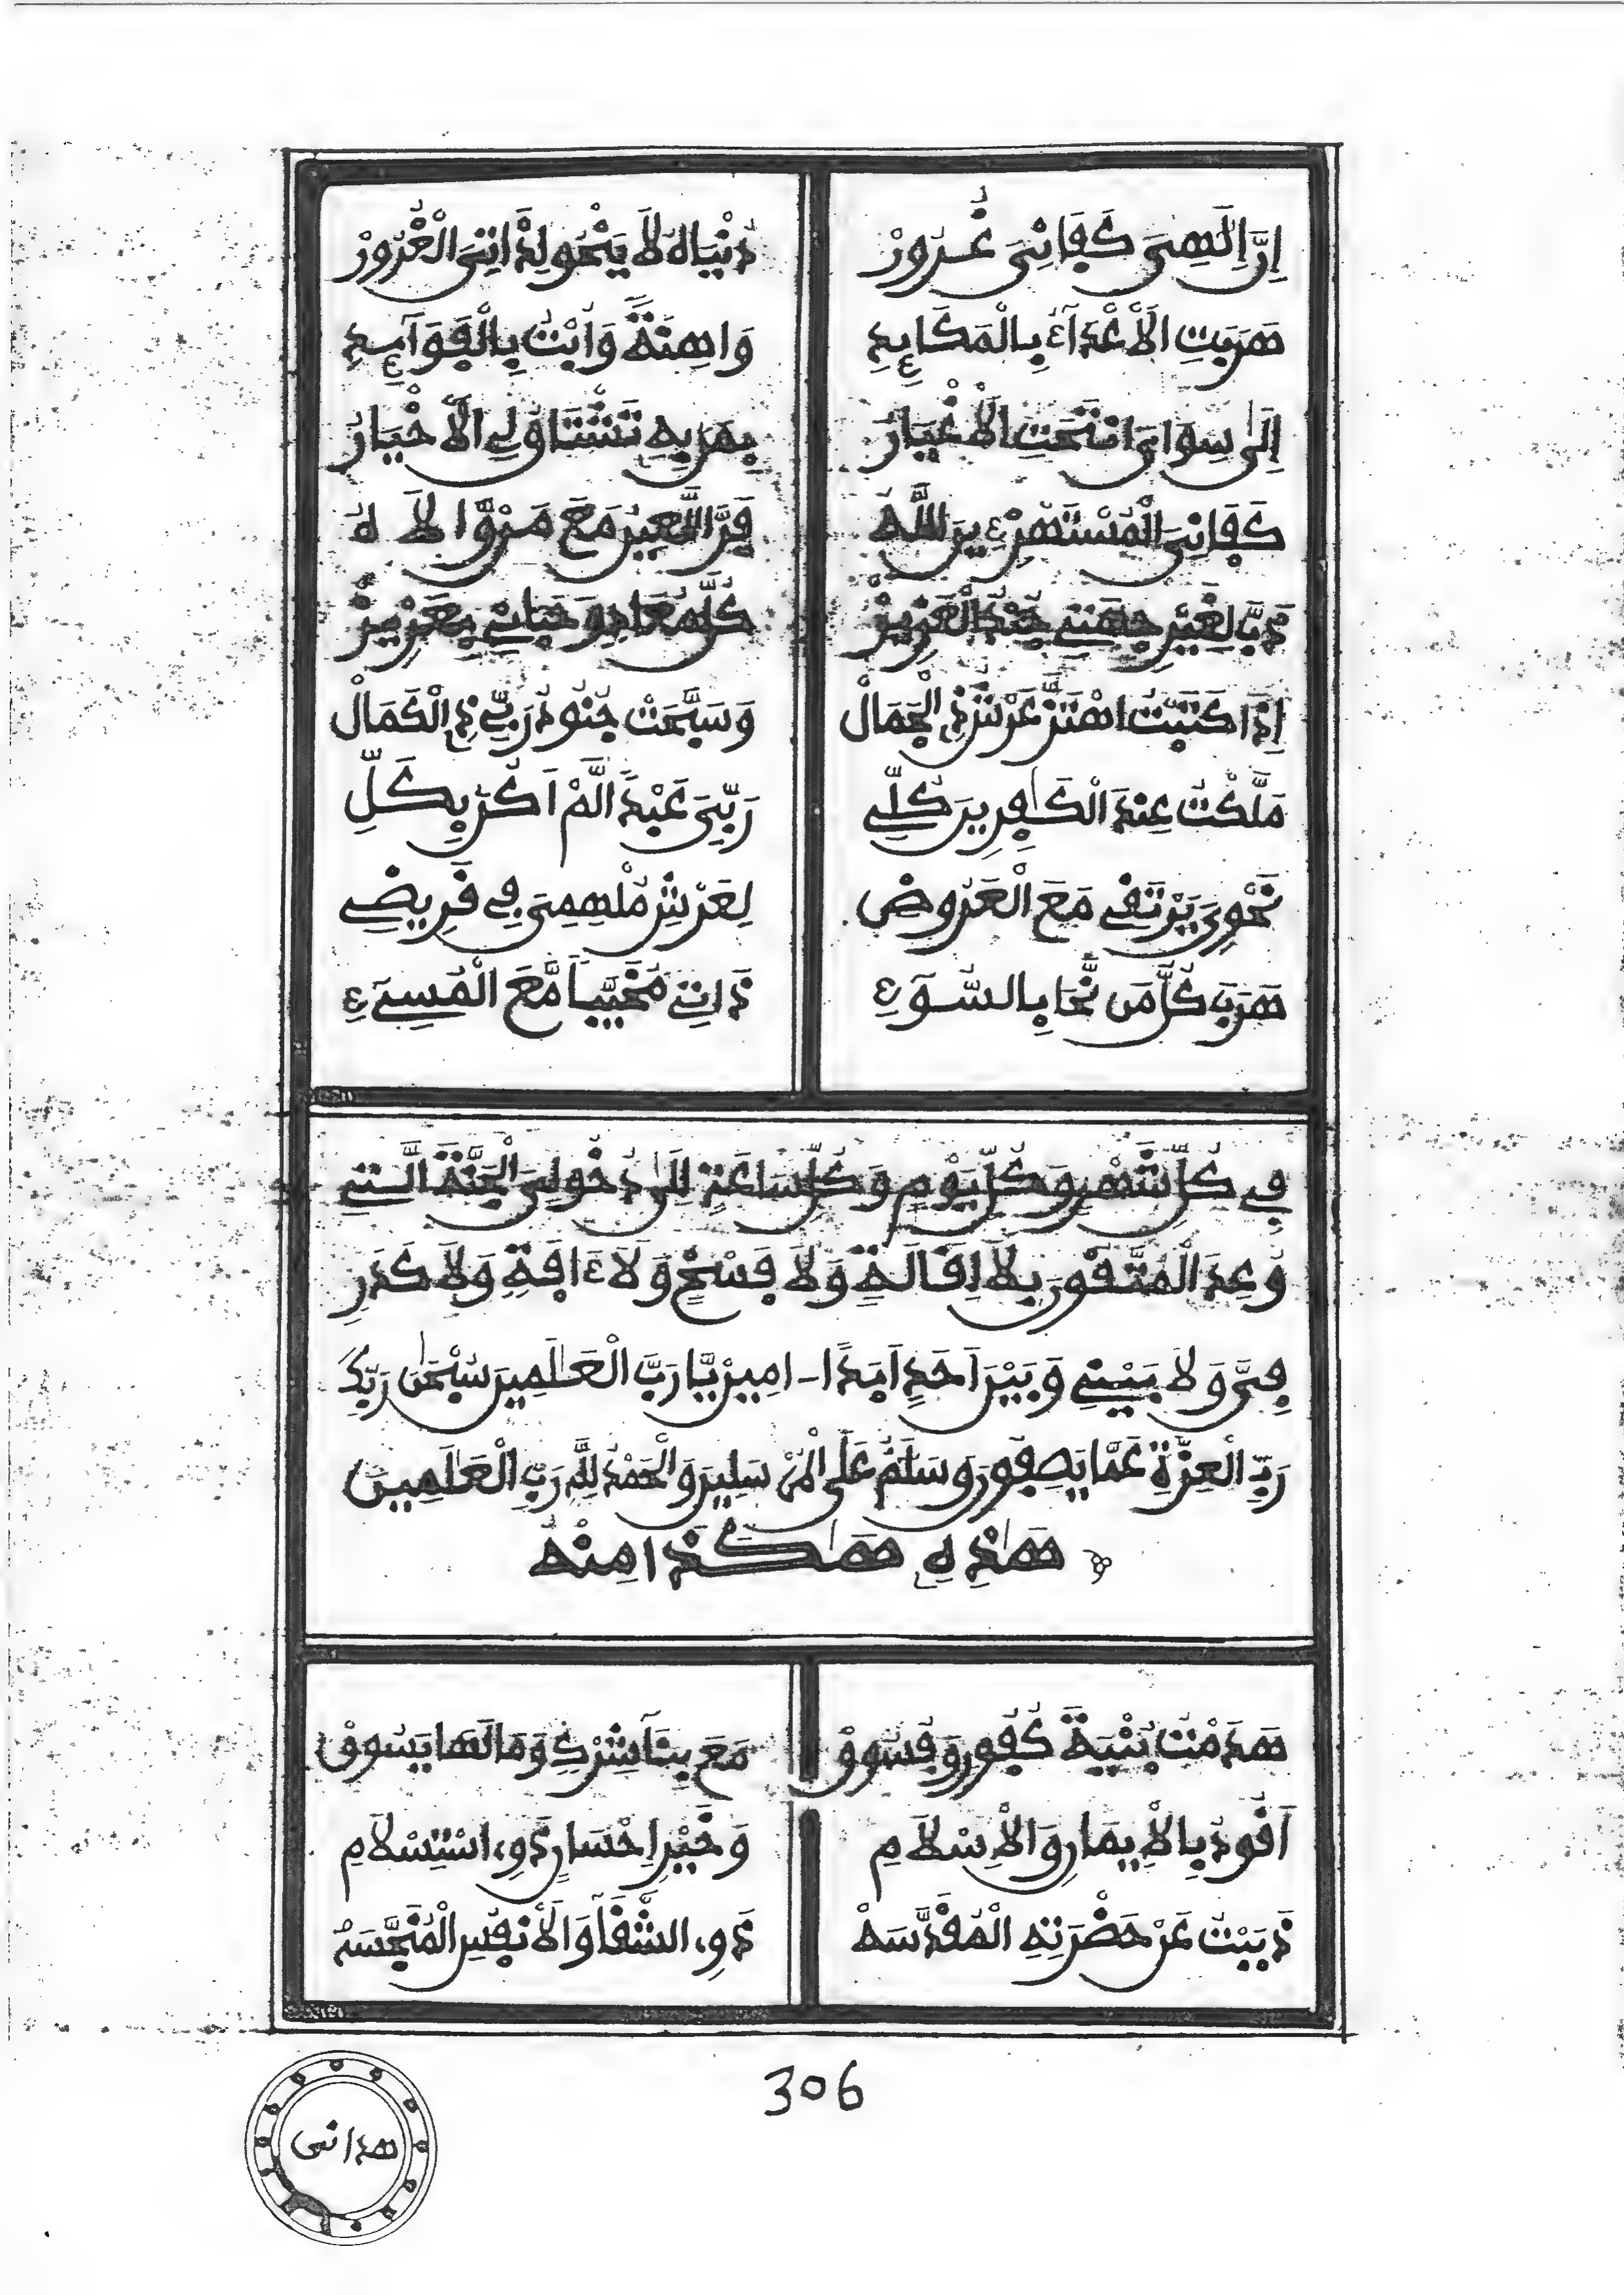 إِنَّ إِلَٰهِيَ كَفَانِيَ غُرُورْ دُنْيَا لَا يَنْحُو لِذَاتِيَ الْغُرُورْ
هَرَبَتِ الْأَعْدَاءُ بِالْمَكَايِدِ وَاهِنَةً وَأُبْتُ بِالْفَوَائِدِ
إِلَى سِوَايَ انْتَحَتِ الْأَغْيَارُ بِمَن بِهِ تَشْتَاقُ لِي الْأَخْيَارُ
كَفَانِيَ الْمُسْتَهْزِئِينَ اللَّهُ فَرَّ اللَّعِينُ مَعَ مَن وَّالَاهُ
ذَبَّ لِغَيْرِ جِهَتِي جُنْدُ الْعَزِيزْ كُلَّ مُعَادٍ وَحَبَانِي بِعَزِيزْ
إِذَا كَتَبْتُ اهْتَزَّ عَرْشُ ذِي الْجَمَالْ وَسَبَّحَتْ جُنُودُ رَبِّي ذِي الْكَمَالْ
مَلَّكْتُ عِنْدَ الْكَافِرِينَ كُلِّي رَبِّيَ عَبْدًا لَّمْ أَكُن بِكَلِّ
نَحْوِيَ يَرْتَقِي مَعَ الْعَرُوضِ لِعَرْشِ مُلْهِمِيَ فِي قَرِيضِي
هَرَبَ كُلُّ مَن نَّحَا بِالسُّوءِ ذَاتِي مُخَيَّبًا مَّعَ الْمُسِيءِ
فِي كُلِّ شَهْرٍ وَكُلِّ يَوْمٍ وَكُلِّ سَاعَةٍ إِلَى دُخُولِيَ الْجَنَّةَ الَّتِي
وُعِدَ الْمُتَّقُونَ بِلَا إِقَالَةٍ وَلَا فَسْخٍ وَلَا ءَافَةٍ وَلَا كَدَرٍ
فِيَّ وَلَا بَيْنِي وَبَيْنَ أَحَدٍ أَبَدًا ءَامِينَ يَا رَبَّ الْعَالَمِينَ سُبْحَانَ رَبِّكَ
رَبِّ الْعِزَّةِ عَمَّا يَصِفُونَ وَسَلَامٌ عَلَى الْمُرْسَلِينَ وَالْحَمْدُ لِلَّهِ رَبِّ الْعَالَمِينَ
هَٰذِهِ هَٰكَذَا مِنْهُ
هَدَمْتُ بُنْيَةَ كُفُورٍ وَفُسُوقْ مَعَ بِنَا شِرْكٍ وَمَا لَهَا يَسُوقْ
أَقُودُ بِالْإِيمَانِ وَالْإِسْلَامِ وَخَيْرِ إِحْسَانٍ ذَوِي اسْتِسْلَامِ
ذَبَبْتُ عَنْ حَضْرَتِهِ الْمُقَدَّسَهْ ذَوِي الشَّقَا وَالْأَنْفُسِ الْمُنَجَّسَهْ
306